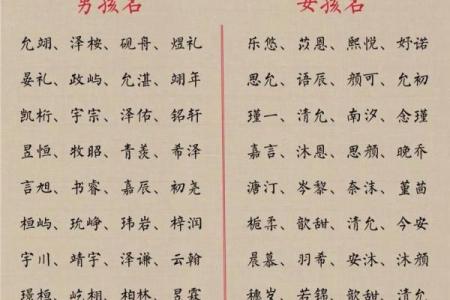 男孩名
允翊、泽桉、砚舟、煜礼
晏礼、政屿、允湛、翊年
凯桁、宇宗、泽佑、铭轩
昱恒、牧昭、青羡、希泽
言旭、书睿、嘉辰、初尧
桓屿、玧峥、玮岩、梓润
宇川、靖宇、泽谦、云翰
璟桓、屹栩、柏林、昱霖
女孩名
乐悠、苡恩、熙悦、妤诺
思允、语辰、颜可、允初
瑾一、清允、南汐、念瑾
嘉言、沐恩、思颜、晚乔
溏汀、岑黎、奈沫、堇茵
栀柔、歆甜、清允、今安
晨慕、羽希、安沐、沐颜
穗岁、若锦、歆甜、清允